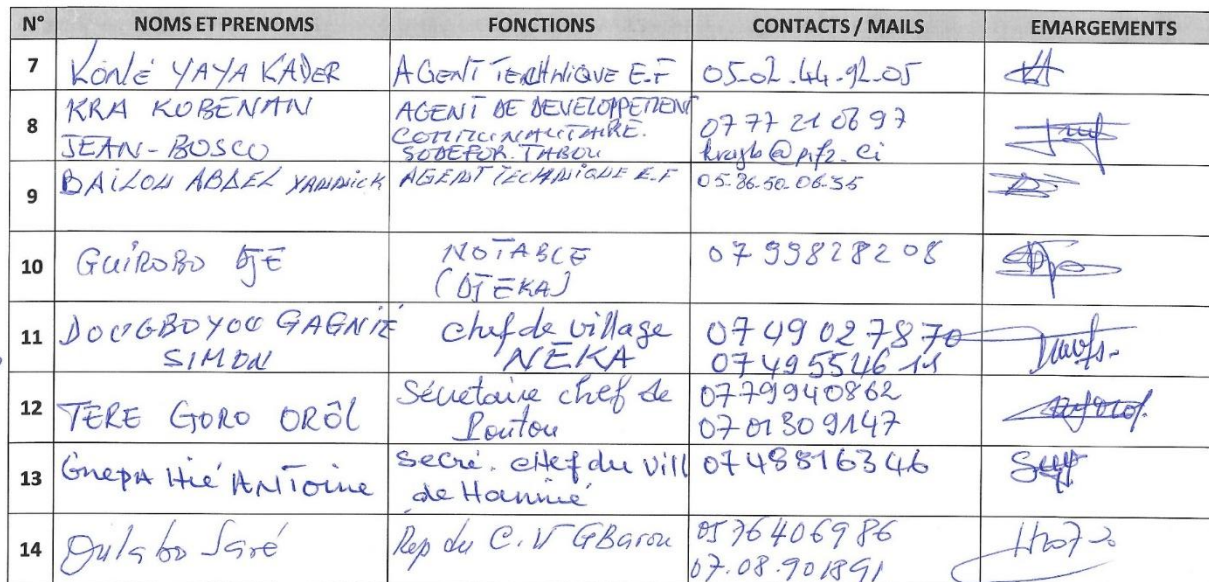 N° NOMS ET PRENOMS FONCTIONS CONTACTS / MAILS EMARGEMENTS
7 KONÉ YAYA KADER AGENT TECHNIQUE E.F 05.02.44.92.05
8 KRA KOBENAN JEAN-BOSCO AGENT DE DEVELOPPEMENT COMMUNAUTAIRE. SODEFOR. TABOU 07 77 21 06 97
9 BAILOU ABDEL YANNICK AGENT TECHNIQUE E.F 05.86.50.06.55
10 GUIROBO DJE NOTABLE (DJEKA) 07 99828208
11 DOUGBOYOU GAGNIE SIMON chef de village NEKA 07 49 02 78 70 07 49 55 46 11
12 TERE GORO OROL Sécretaire chef de Poutou 0779940862 07 01 30 9147
13 GnepA Hié ANToine secré. chef du vill de Hannié 0748816346
14 Oulabo Saré Rep du C.V GBarou 0576406986 07.08.901891